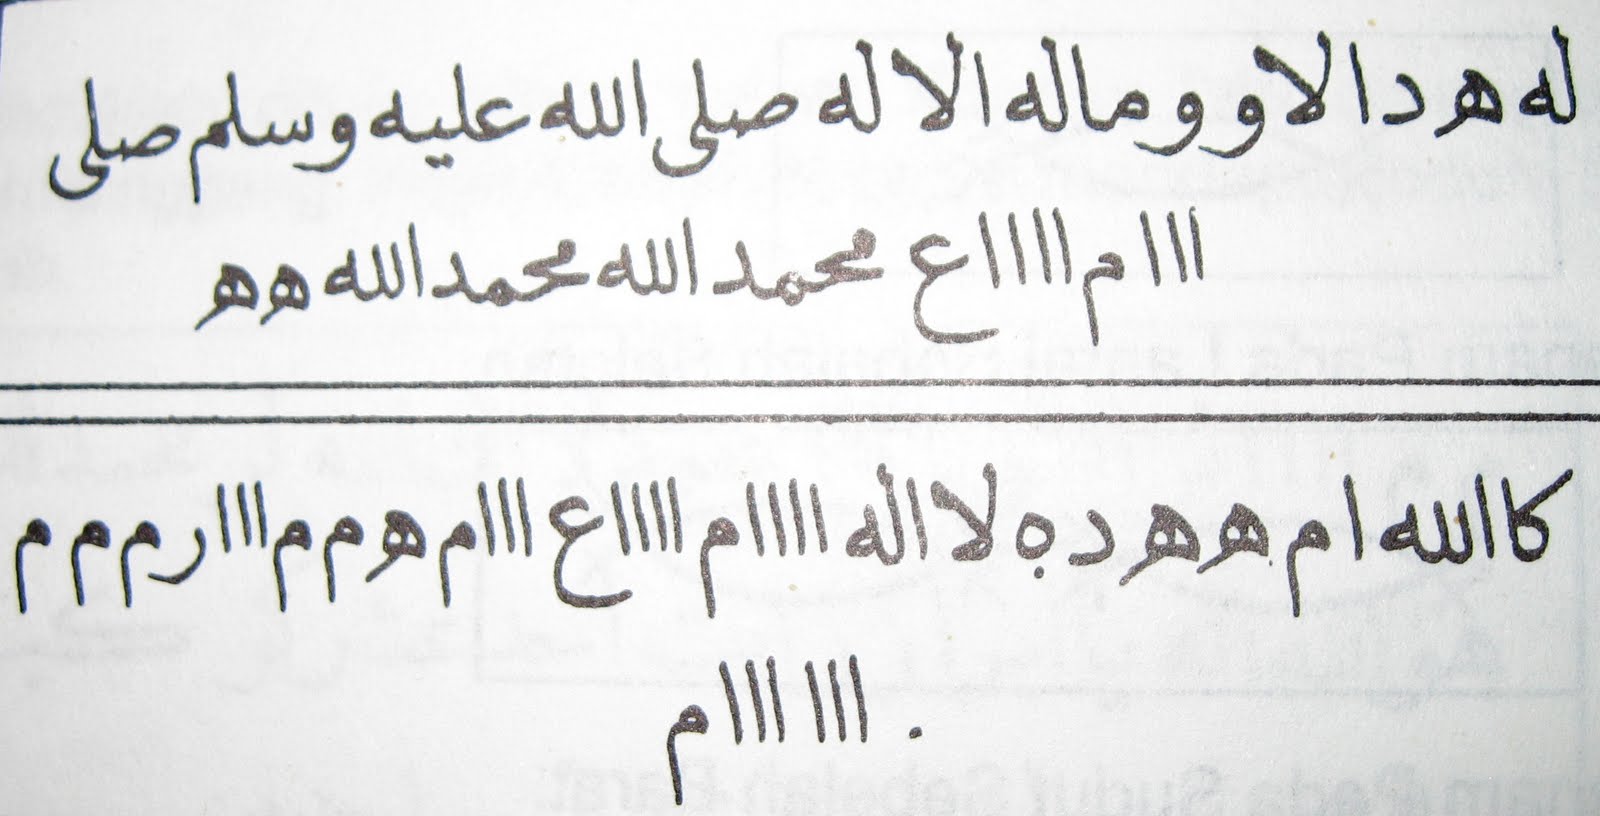 له ه د ا لا و و ماله الا له صلى الله عليه وسلم صلى
ااا م اااا ع محمد الله محمد الله ه ه
كا الله ا م ه ه د ه لا اله اااا م اااا ع ااا م ه م م ااا ر م م م
. ااا ااا م